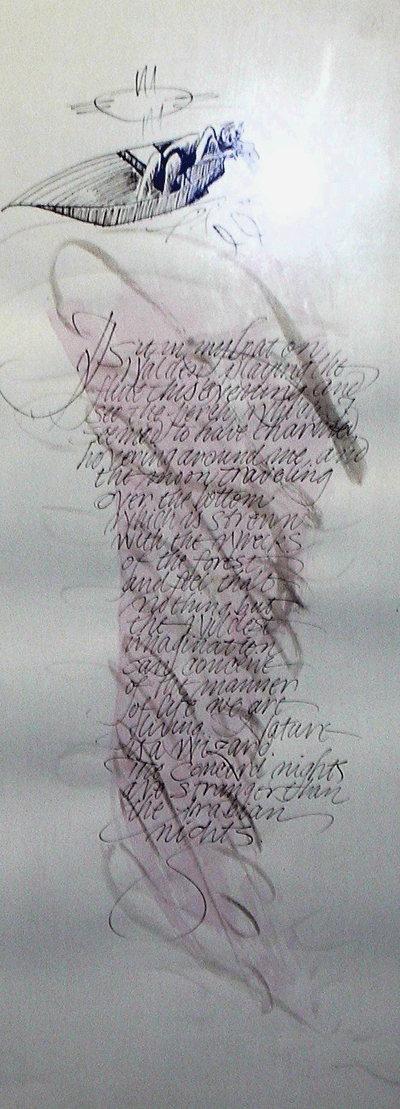 I sit in my boat on
Walden, playing the
flute this evening, and
see the perch, which I
seemed to have charmed,
hovering around me, and
the moon traveling
over the bottom
which is strewn
with the wrecks
of the forest
and feel that
nothing but
the wildest
imagination
can conceive
of the manner
of life we are
living. Nature
is a Wizard.
The Concord nights
are stranger than
the Arabian
nights